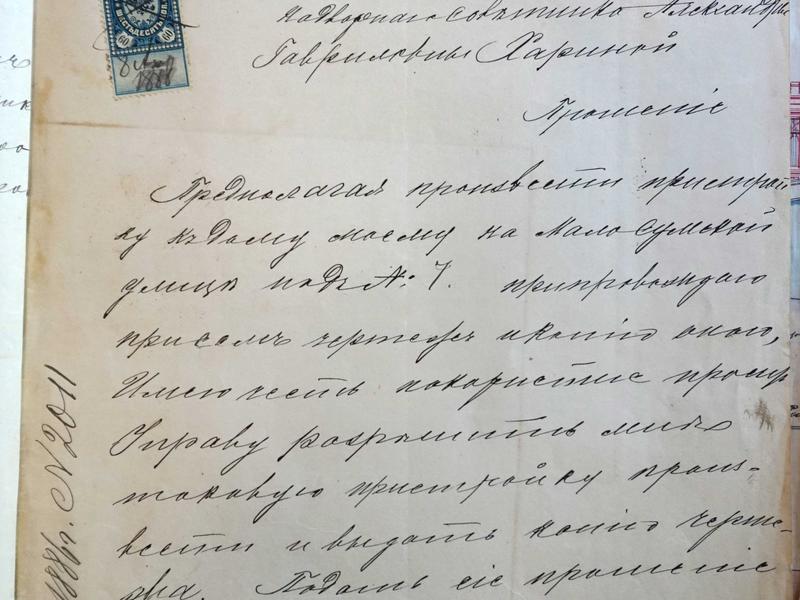 надворнаго совѣтника Александры
Гавриловны Хариной
Прошеніе
Предполагая произвести пристрой
ку къ дому моему на Мало Сумской
улицѣ подъ №: 7. припровождаю
при семъ чертежъ и копію оного,
Имею честь покорнѣйше просить
Управу разрѣшить мнѣ
таковую пристройку произ-
вести и выдать копію черте-
жа. Подать сіе прошеніе
60 60
1886г. N 2011